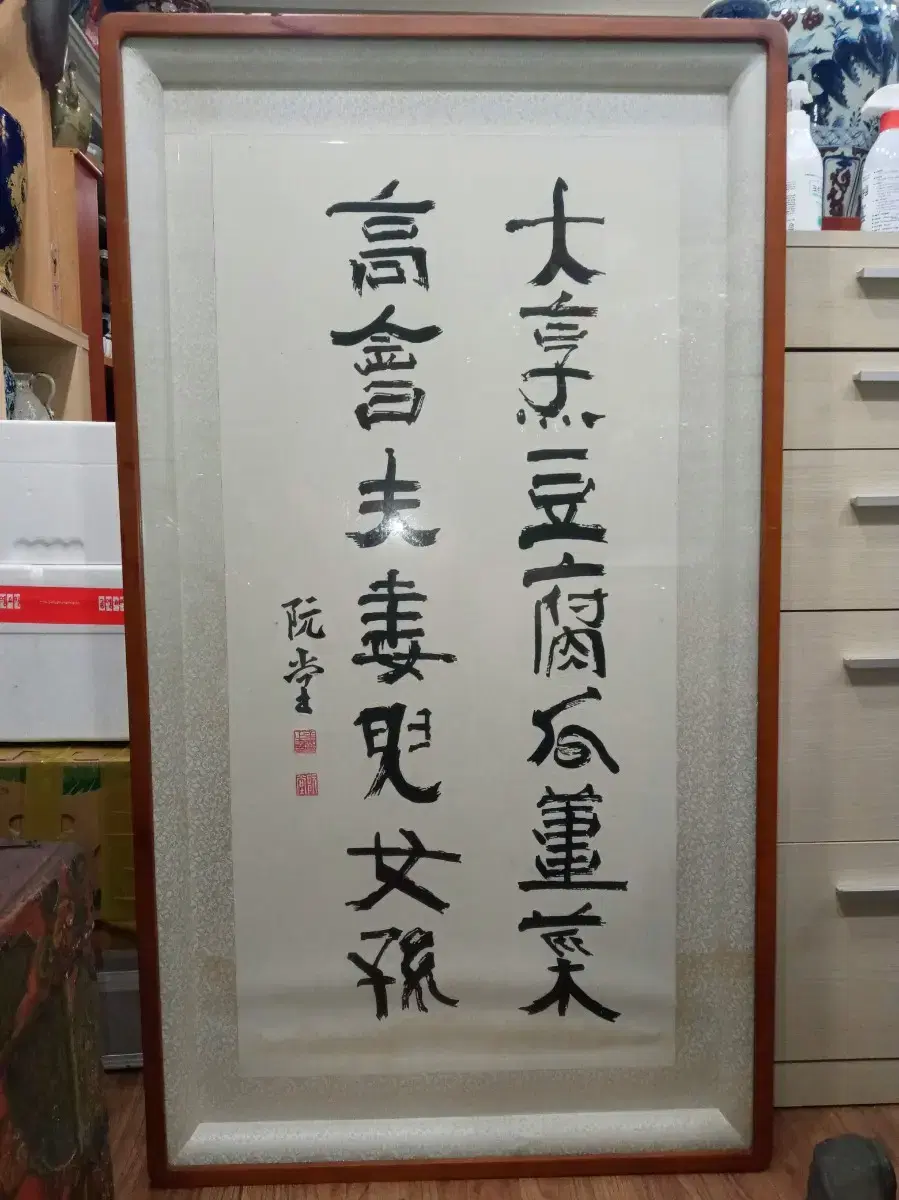 大烹豆腐瓜薑菜
高會夫妻兒女孫
阮堂